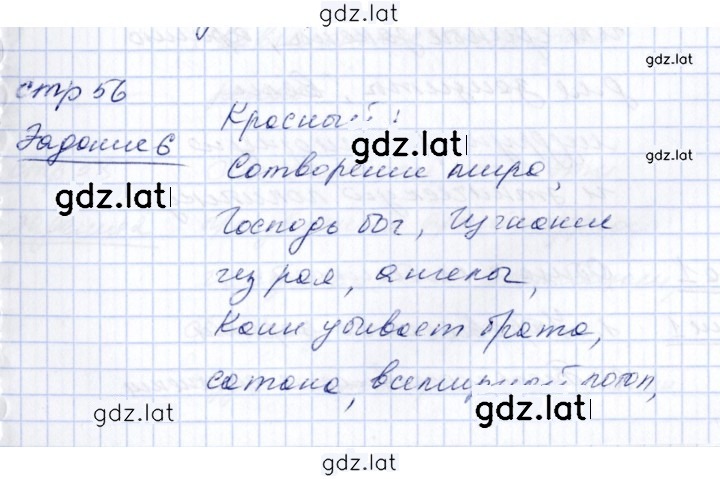 gdz.lat
gdz.lat
стр 56
Красный:
gdz.lat
Задание 6
gdz.lat
Сотворение мира,
gdz.lat
Господь бог, Изгнание
из рая, ангелы,
Каин убивает брата,
сатана, всемирный потоп,
gdz.lat
gdz.lat
gdz.lat
gdz.lat